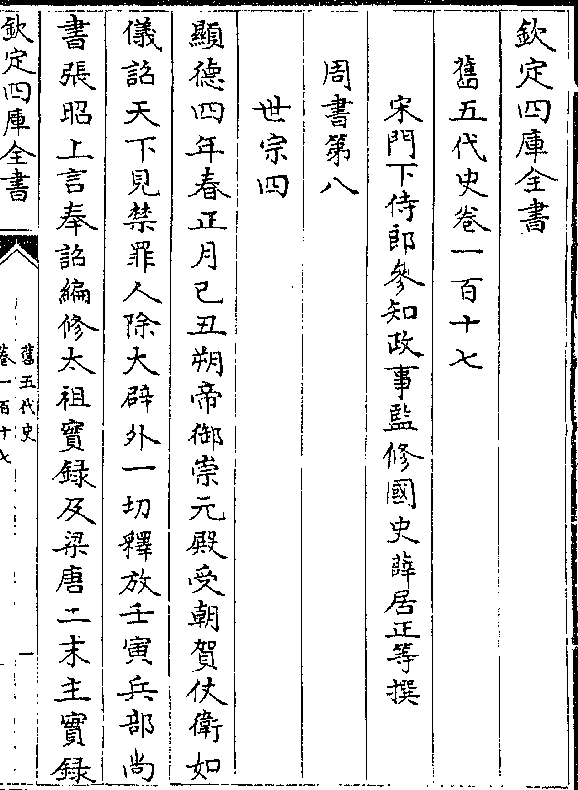 欽定四庫全書
舊五代史卷一百十七
宋門下侍郎參知政事監修國史薛居正等撰
周書第八
世宗四
顯德四年春正月己丑朔帝御崇元殿受朝賀仗衛如
儀詔天下見禁罪人除大辟外一切釋放壬寅兵部尚
書張昭上言奉詔編修太祖實録及梁唐二末主實録
欽定四庫全書
舊五代史
卷一百十七
一